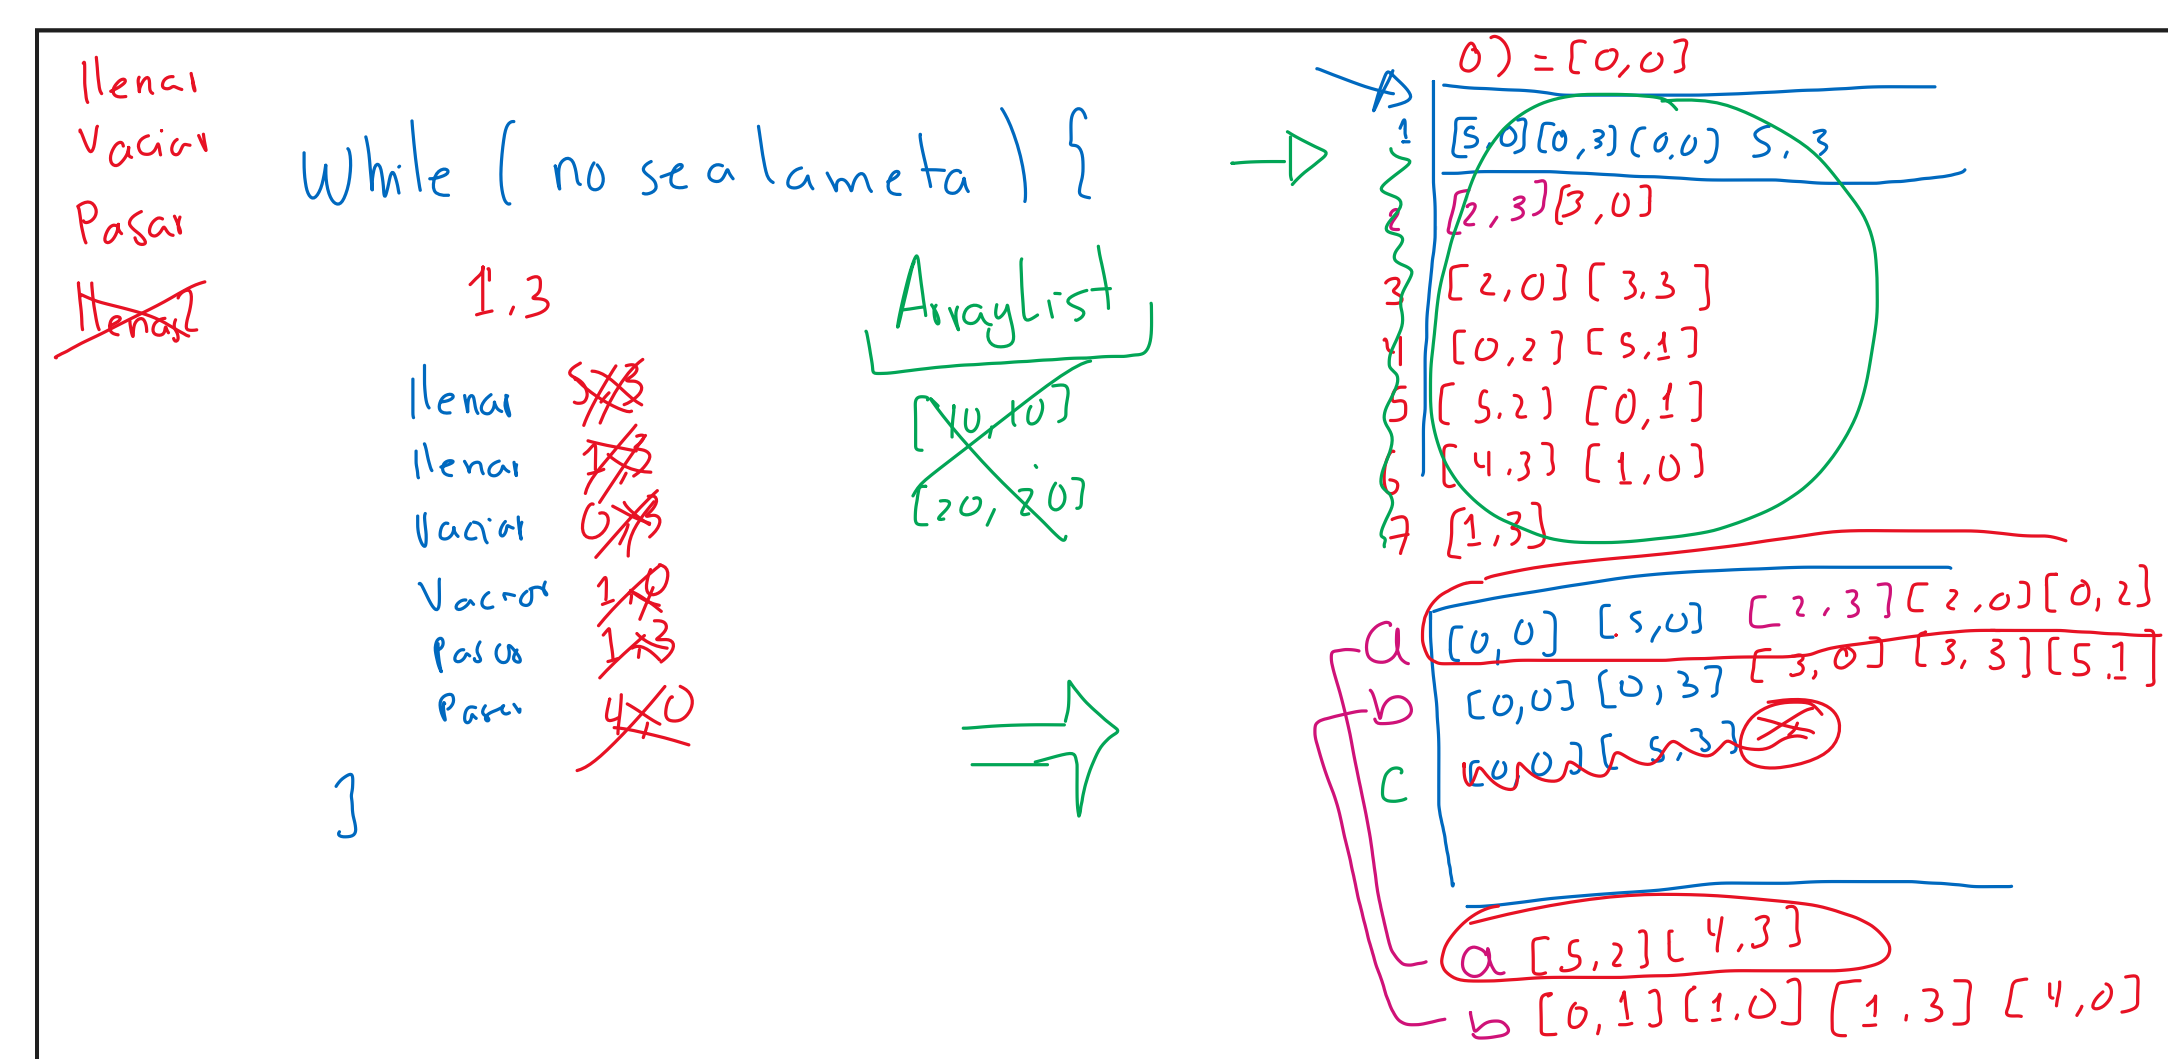 llenar
Vaciar
Pasar
llenar
While ( no sea la meta ) {
1,3
llenar 5,3
llenar 1,3
Vaciar 0,3
Vaciar 1,0
Pasar 1,3
Pasar 4,0
}
ArrayList
[10,10]
[20,20]
0) = [0,0]
1 [5,0] [0,3] (0,0) 5,3
2 [2,3] [3,0]
3 [2,0] [3,3]
4 [0,2] [5,1]
5 [5,2] [0,1]
6 [4,3] [1,0]
7 [1,3]
a [0,0] [5,0] [2,3] [2,0] [0,2]
b [0,0] [0,3] [3,0] [3,3] [5,1]
c [0,0] [5,3]
a [5,2] [4,3]
b [0,1] [1,0] [1,3] [4,0]